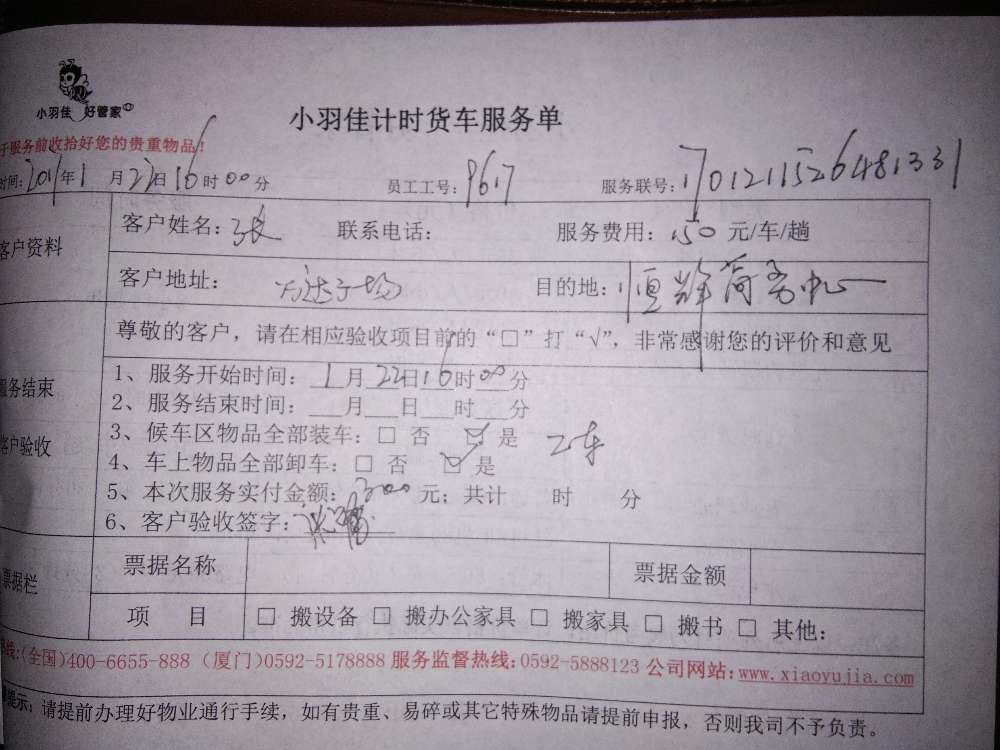 小羽佳 好管家
小羽佳计时货车服务单
于服务前收拾好您的贵重物品!
时间: 年1月22日16时00分 员工工号:9617 服务联号:1701211526481331
客户资料
客户姓名:张 联系电话: 服务费用:150元/车/趟
客户地址:万达广场 目的地:恒辉商务中心
尊敬的客户，请在相应验收项目前的“□”打“√”，非常感谢您的评价和意见
服务结束
客户验收
1、服务开始时间:1月22日16时00分
2、服务结束时间:___月___日___时___分
3、候车区物品全部装车:□ 否 ☑ 是 2车
4、车上物品全部卸车:□ 否 ☑ 是
5、本次服务实付金额:300元;共计 时 分
6、客户验收签字:
票据栏
票据名称 票据金额
项 目 □ 搬设备 □ 搬办公家具 □ 搬家具 □ 搬书 □ 其他:
热线:(全国)400-6655-888 (厦门)0592-5178888 服务监督热线:0592-5888123 公司网站:www.xiaoyujia.com
提示:请提前办理好物业通行手续，如有贵重、易碎或其它特殊物品请提前申报，否则我司不予负责。